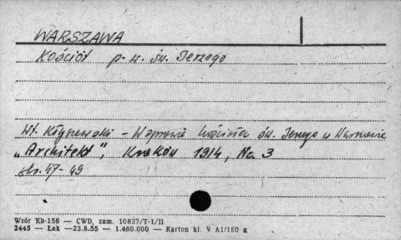 WARSZAWA
Kościół p. w. św. Jerzego
Wł. Kłyszewski - kościoła św. Jerzego w Warszawie
„Architekt", Kraków 1914, No 3
str. 47-49
Wzór Kb-156 — CWD, zam. 10837/T-1/II
2445 — Łak —23.8.55 — 1.460.000 — Karton kl. V A1/180 g